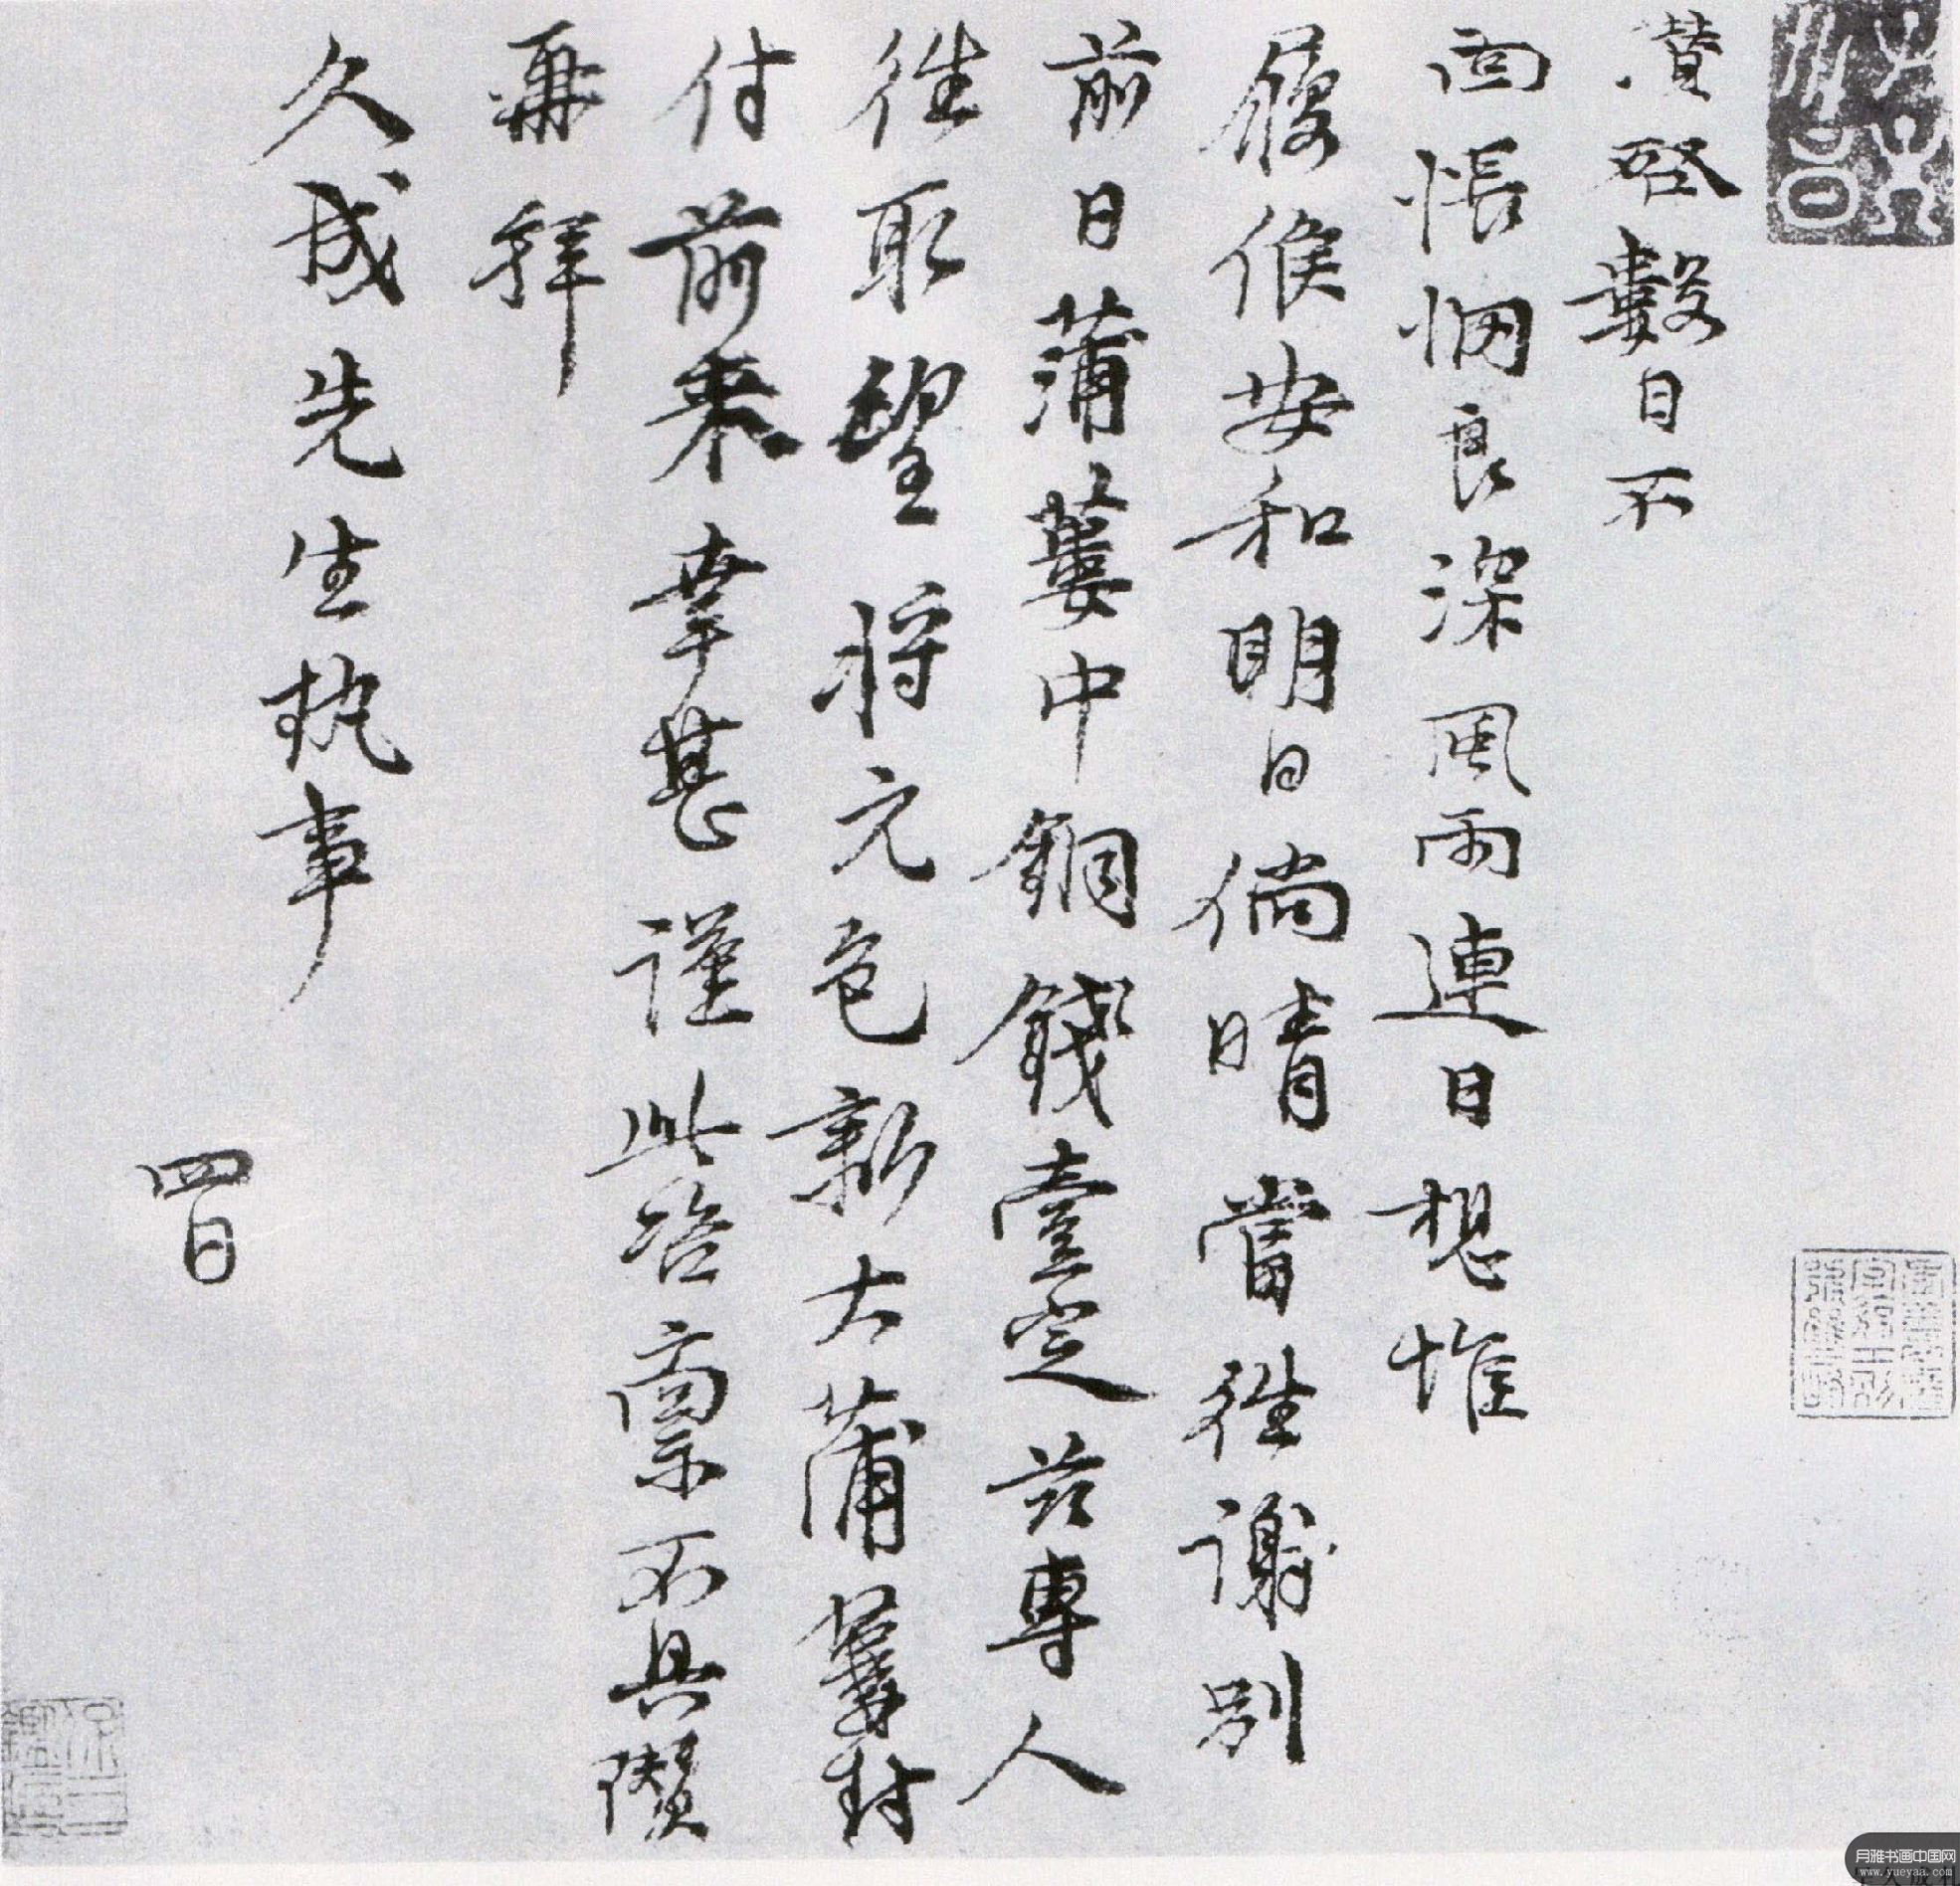 瓚啓數日不
面悵惘良深風雨連日想惟
履候安和明日倘晴當往謝別
前日蒲蔞中銅錢壹定茲專人
往取望將元色新大蒲蔞封
付前来幸甚謹此咨稟不具瓚
再拜
久成先生執事
四日
月雅书画中国网
www.yueyaa.com